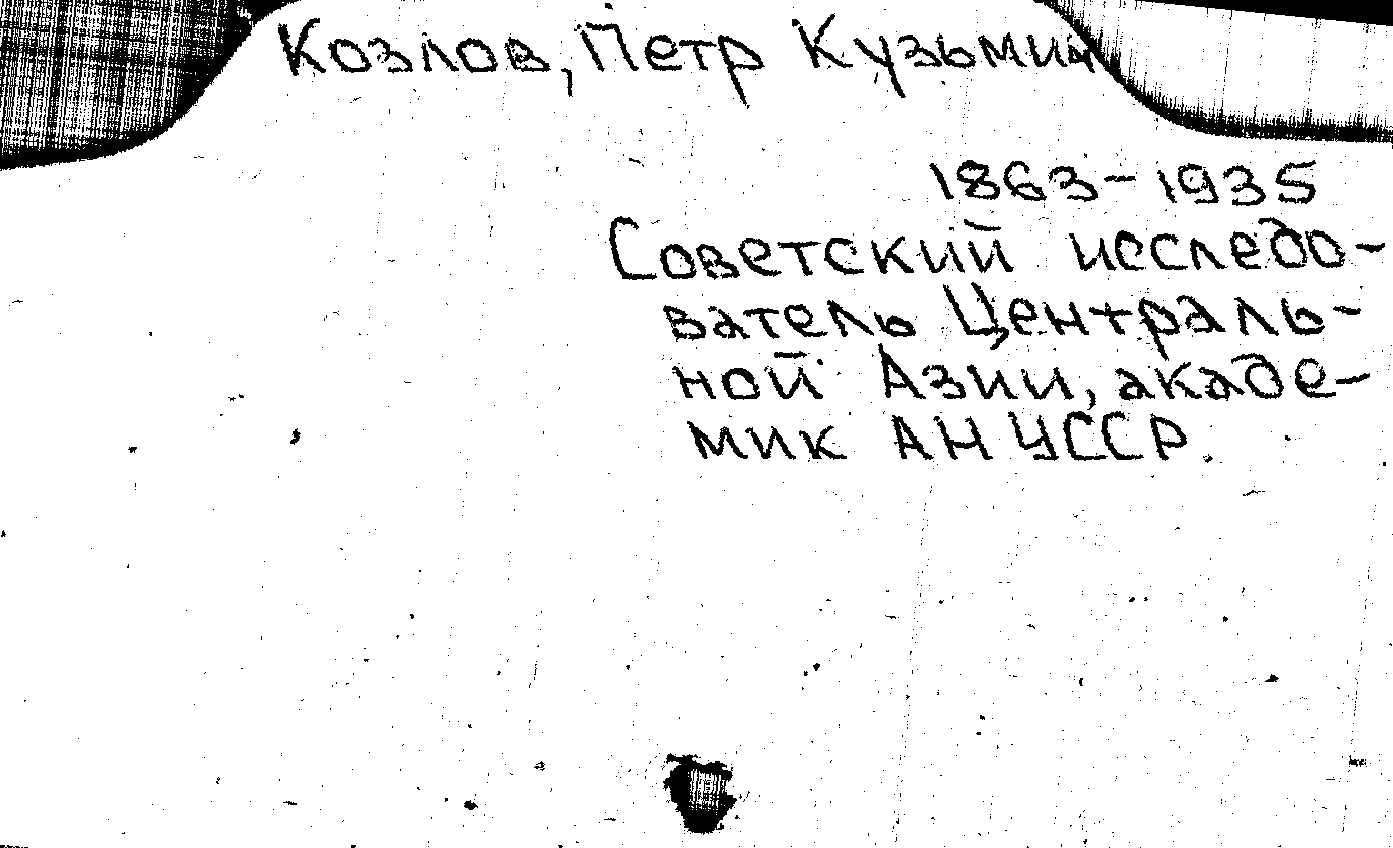 Козлов, Петр Кузьмич
1863-1935
Советский исследо-
ватель Централь-
ной Азии, акаде-
мик АН УССР.